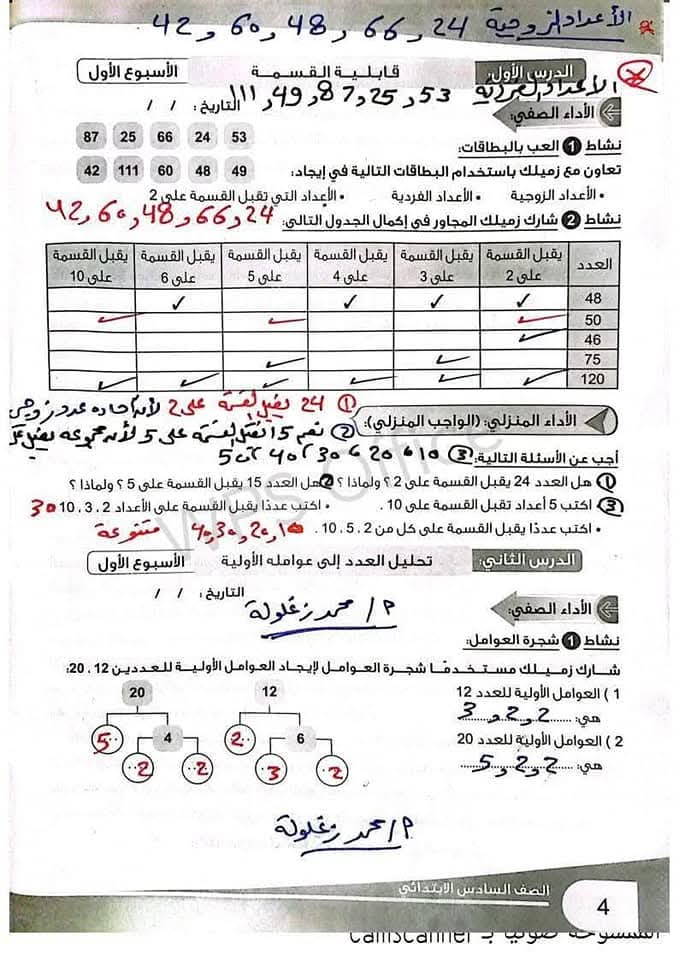 الأعداد الزوجية 24 و 66 و 48 و 60 و 42
الدرس الأول: قابلية القسمة الأسبوع الأول
الأعداد الفردية 53 و 25 و 87 و 49 و 111
الأداء الصفي: التاريخ: / /
نشاط 1 العب بالبطاقات:
87 25 66 24 53
تعاون مع زميلك باستخدام البطاقات التالية في إيجاد:
42 111 60 48 49
• الأعداد الزوجية • الأعداد الفردية • الأعداد التي تقبل القسمة على 2
24 و 66 و 48 و 60 و 42
نشاط 2 شارك زميلك المجاور في إكمال الجدول التالي:
العدد يقبل القسمة على 2 يقبل القسمة على 3 يقبل القسمة على 4 يقبل القسمة على 5 يقبل القسمة على 6 يقبل القسمة على 10
48 ✓ ✓ ✓ ✓
50 ✓ ✓ ✓
46 ✓
75 ✓ ✓
120 ✓ ✓ ✓ ✓ ✓ ✓
① 24 يقبل القسمة على 2 لأنه آحاده عدد زوجي
الأداء المنزلي: (الواجب المنزلي):
② نعم 15 تقبل القسمة على 5 لأن
أجب عن الأسئلة التالية: ③ 10 ، 20 ، 30 ، 40 ، 50
① هل العدد 24 يقبل القسمة على 2 ؟ ولماذا ؟ ② هل العدد 15 يقبل القسمة على 5 ؟ ولماذا ؟
③ اكتب 5 أعداد تقبل القسمة على 10 . • اكتب عددًا يقبل القسمة على الأعداد 2 ، 3 ، 10 30
• اكتب عددًا يقبل القسمة على كل من 2 ، 5 ، 10 . 10 و 20 و 30 و 40 متنوعة
الدرس الثاني: تحليل العدد إلى عوامله الأولية الأسبوع الأول
التاريخ: / /
الأداء الصفي: م/ محمد زغلولة
نشاط 1 شجرة العوامل:
شارك زميلك مستخدمًا شجرة العوامل لإيجاد العوامل الأولية للعددين 12 ، 20:
1 ) العوامل الأولية للعدد 12
هي: 2 و 2 و 3
2 ) العوامل الأولية للعدد 20
هي: 2 و 2 و 5
20 12
5 4 2 6
2 2 3 2
م/ محمد زغلولة
الصف السادس الابتدائي
4
WPS Office
الممسوحة ضوئيا بـ CamScanner